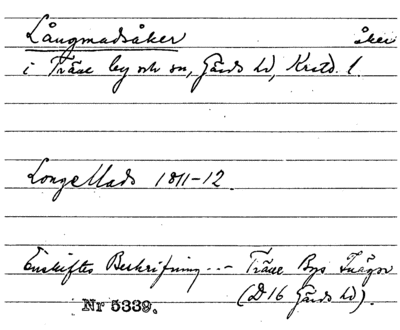 Långmadsåker åker
i Träne by och sn, Gärds hd, Kristd. l.
Longe Mads 1811-12.
Enskiftes Beskrifning --- Träne Bys Inägor
(D16 Gärds hd).
Nr 5339.